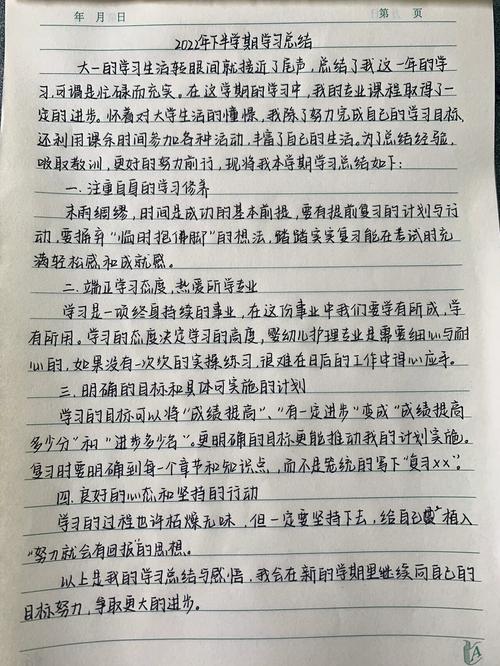 年 月 日 第 页
2022年下半学期学习总结
大一的学习生活轻眼间就接近了尾声,总结了我这一年的学
习,可谓是忙碌而充实。在这学期的学习中,我的专业课程取得了一
定的进步。怀着对大学生活的憧憬,我除了努力完成自己的学习目标,
还利用课余时间参加各种活动,丰富了自己的生活。为了总结经验,
吸取教训,更好的努力前行,现将我本学期学习总结如下:
一.注重自身的学习修养
未雨绸缪,时间是成功的基本前提,要有提前复习的计划与行
动,要摒弃“临时抱佛脚”的想法,踏踏实实复习能在考试时充
满轻松感和成就感。
二.端正学习态度,热爱所学专业
学习是一项终身持续的事业,在这份事业中我们要学有所成,学
有所用。学习的态度决定学习的高度,婴幼儿护理专业是需要细心与耐
心的,如果没有一次次的实操练习,很难在日后的工作中得心应手。
三.明确的目标和具体可实施的计划
学习的目标可以将“成绩提高”、“有一定进步”变成“成绩提高
多少分”和“进步多少名”。更明确的目标更能推动我的计划实施。
复习时要明确到每一个章节和知识点,而不是笼统的写下“复习xx”。
四.良好的心态和坚持的行动
学习的过程也许枯燥无味,但一定要坚持下去,给自己植入
“努力就会有回报”的思想。
以上是我的学习总结与感悟,我会在新的学期里继续向自己的
目标努力,争取更大的进步。